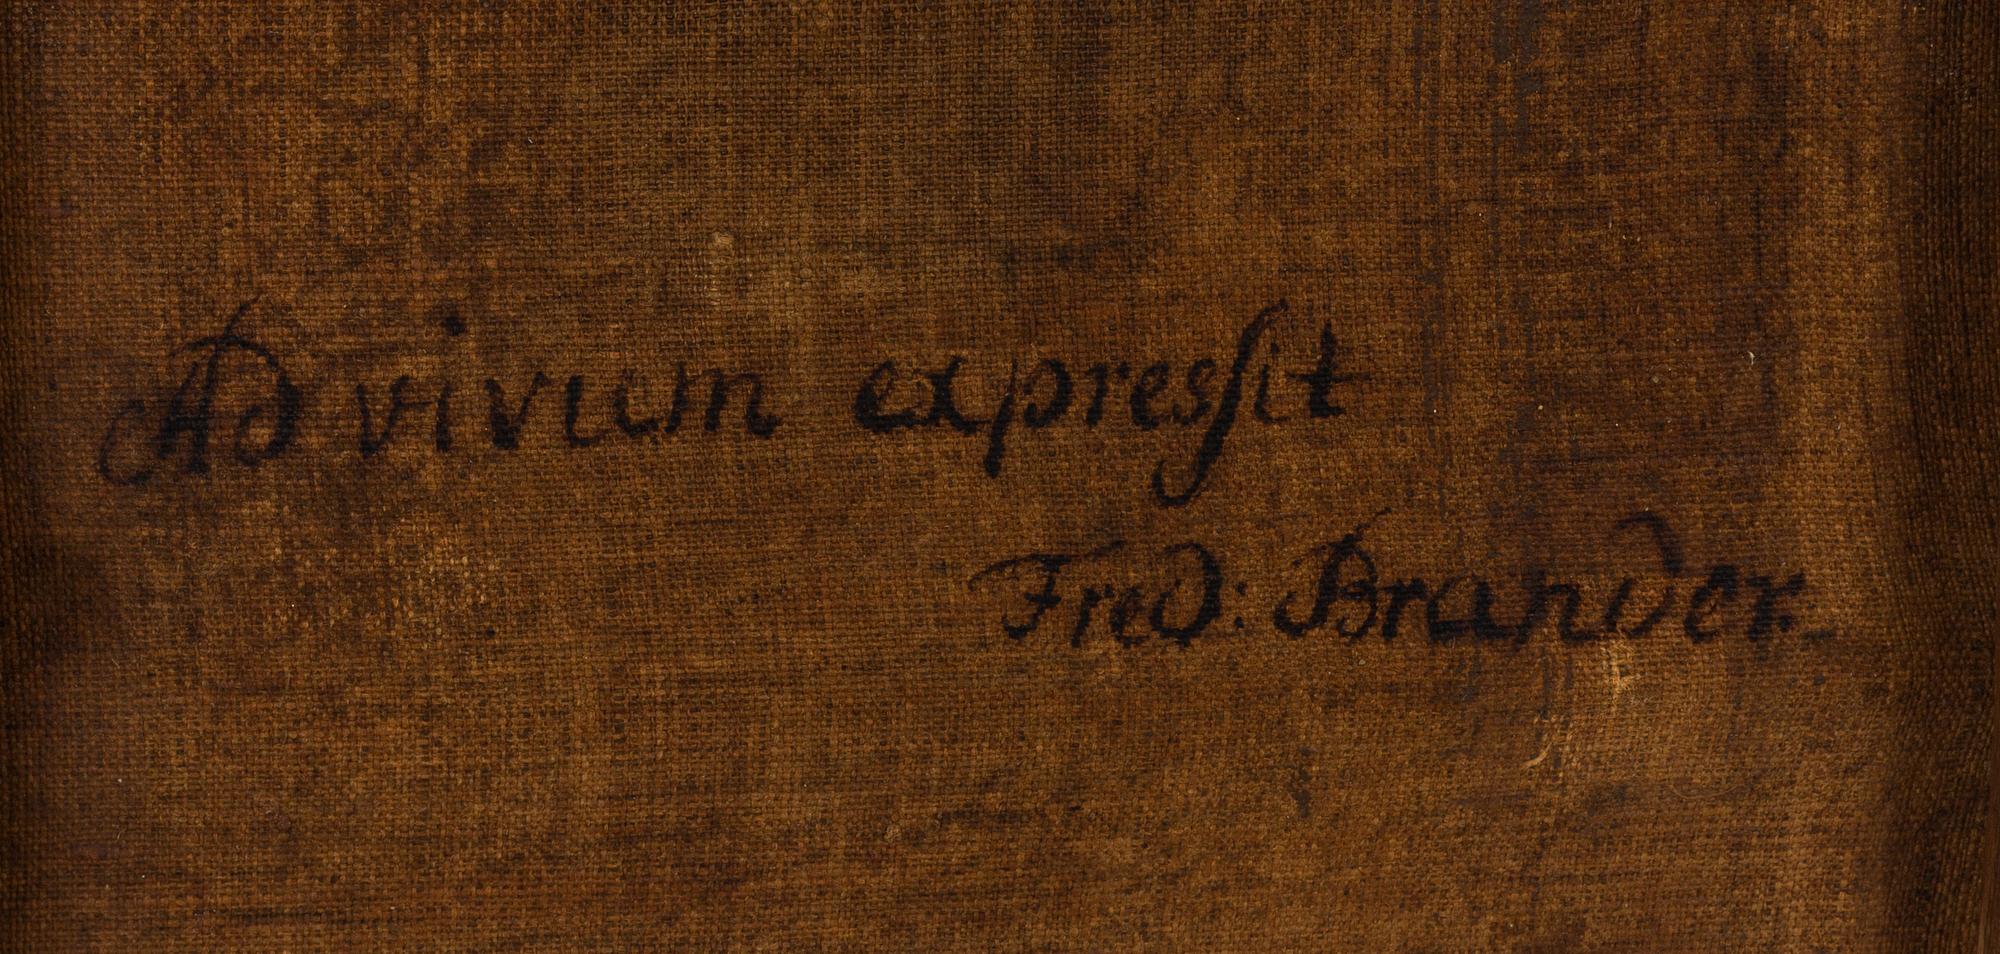 Ad vivum expresſit
Fred: Brander.